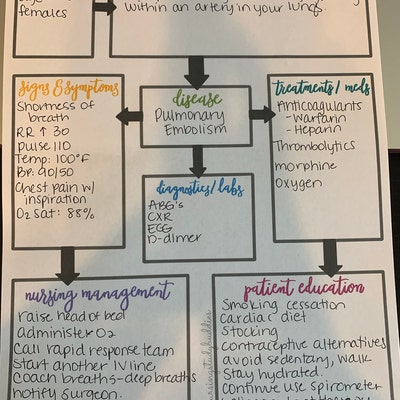 females
within an artery in your lung.
signs & symptoms
Shortness of
breath
RR ↑ 30
pulse 110
Temp: 100°F
BP: 90/50
Chest pain w/
inspiration
O2 Sat: 88%
disease
Pulmonary
Embolism
treatments/meds
Anticoagulants
- Warfarin
- Heparin
Thrombolytics
morphine
Oxygen
diagnostics/labs
ABG's
CXR
ECG
D-dimer
nursing management
raise head of bed
administer O2
Call rapid response team
Start another IV line
Coach breaths-deep breaths
notify surgeon.
patient education
Smoking cessation
Cardiac diet
stocking
contraceptive alternatives
avoid sedentary, walk
Stay hydrated.
Continue use spirometer